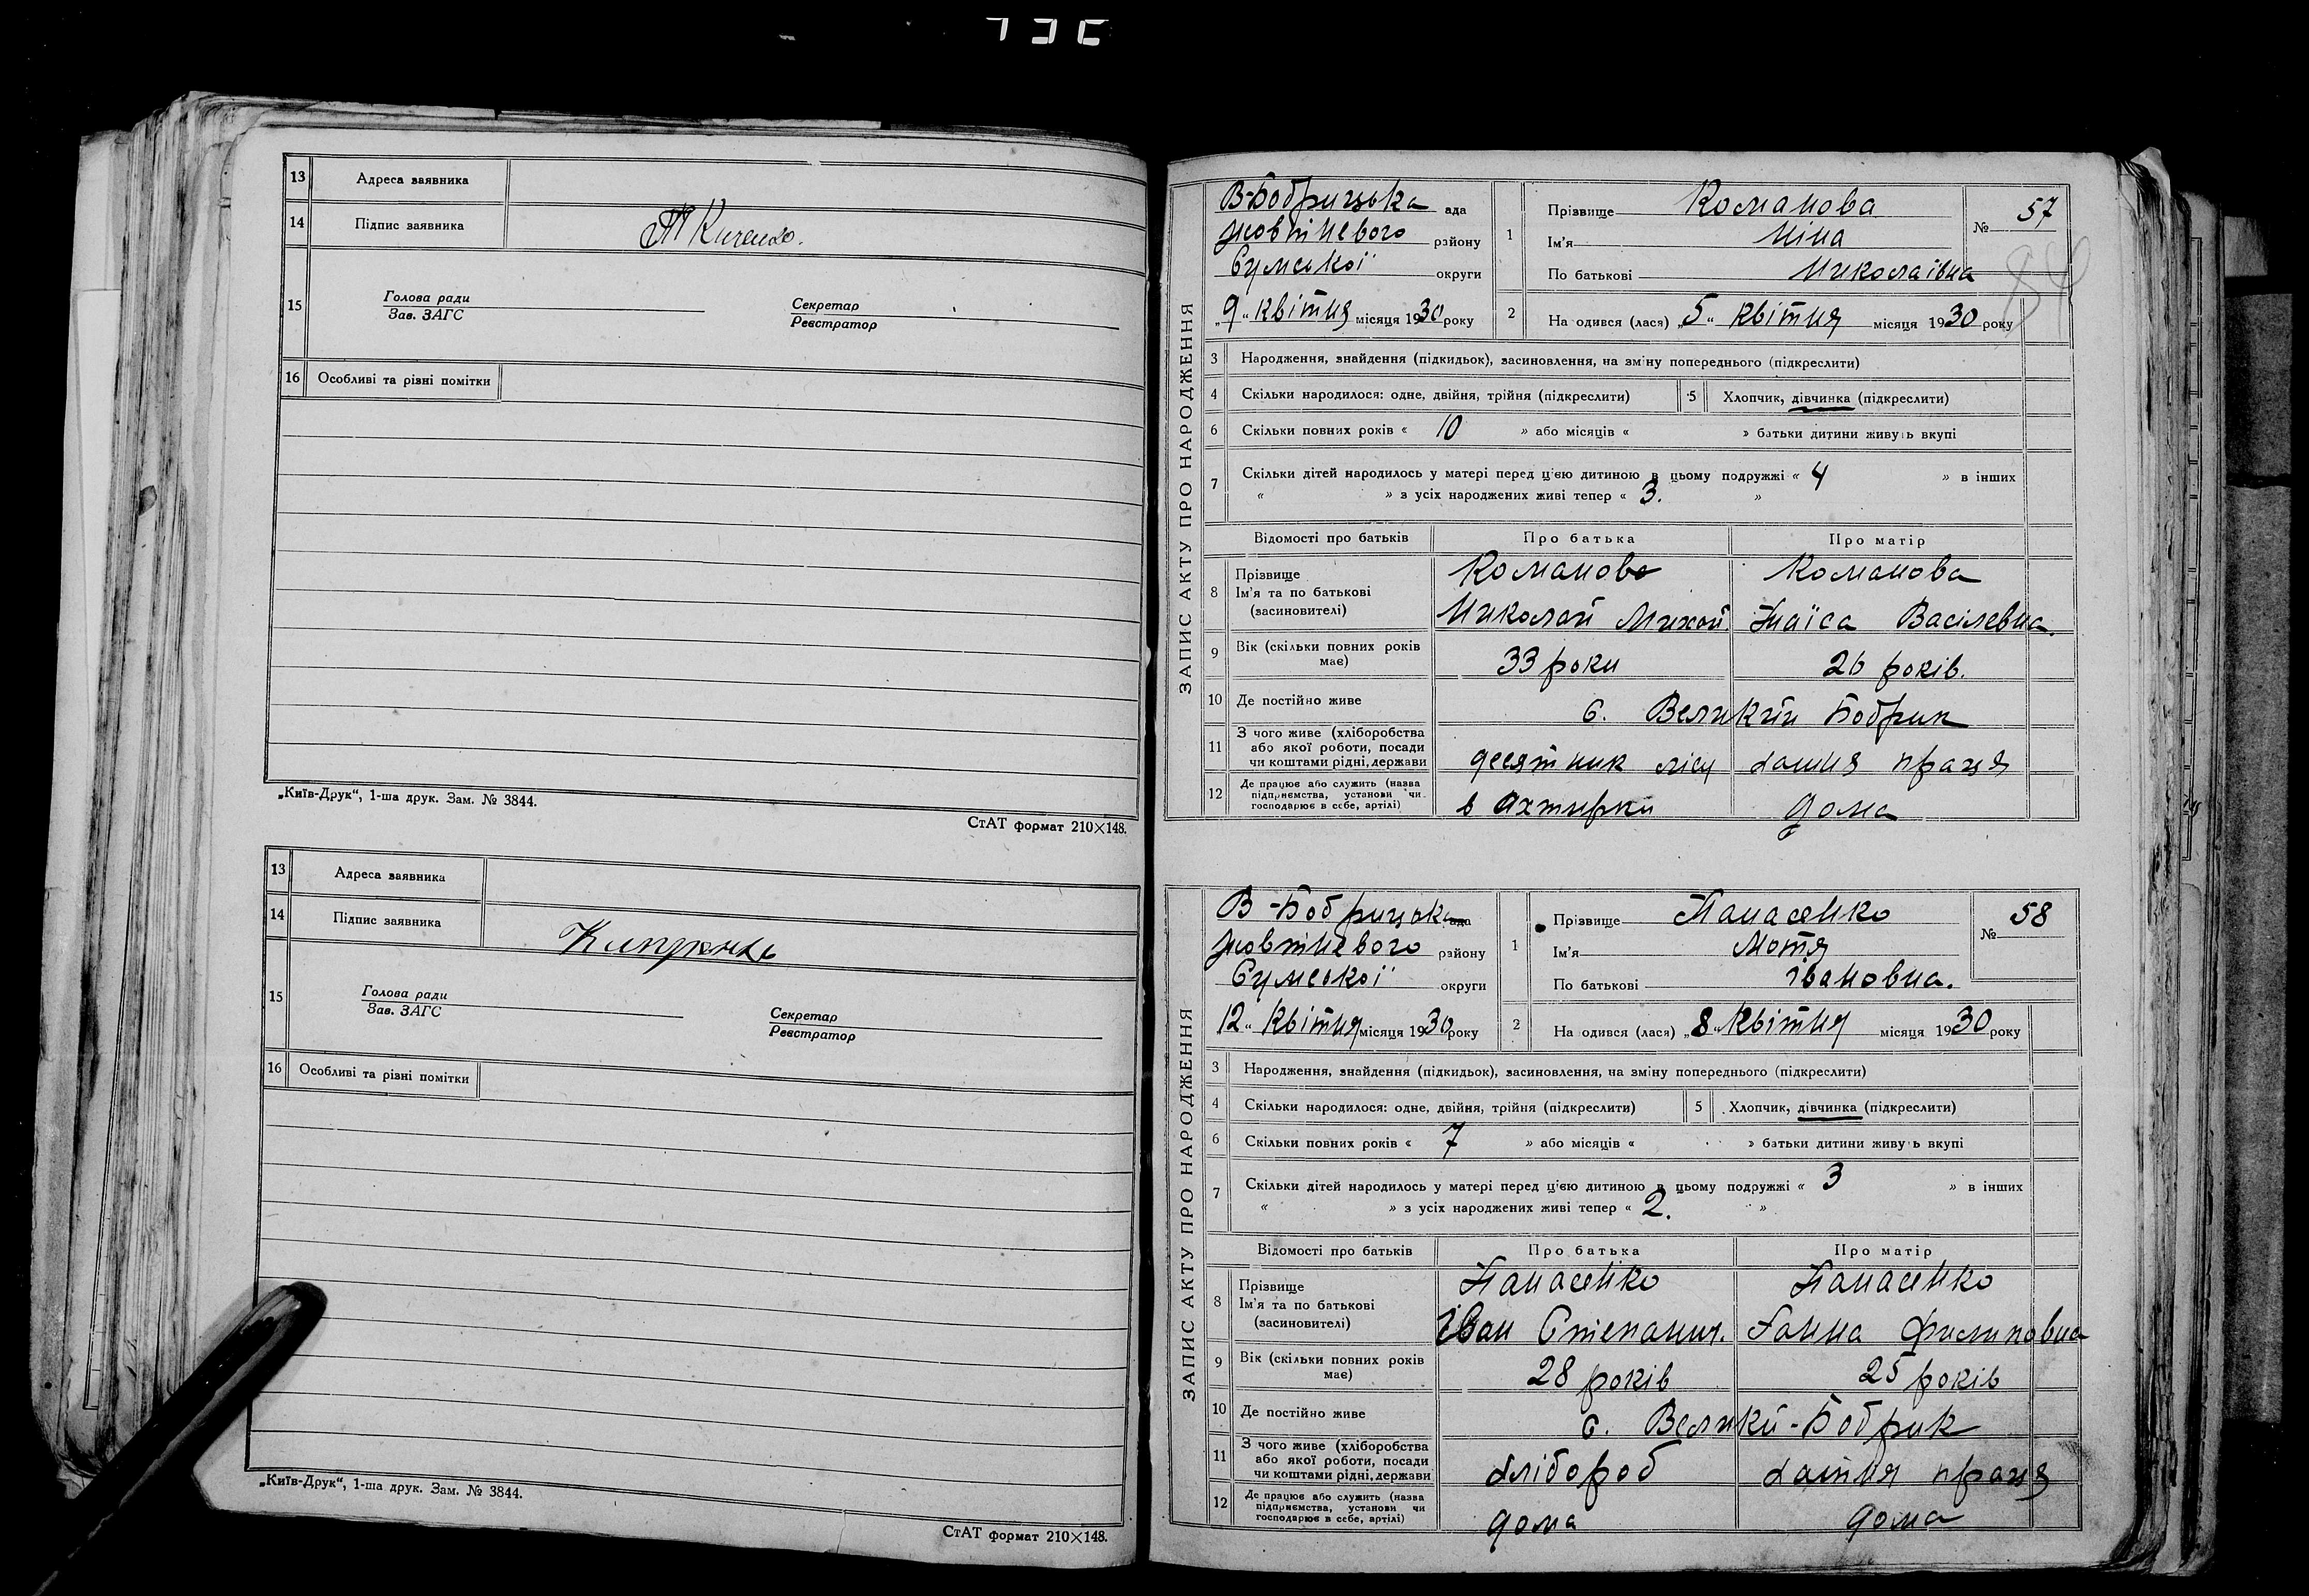 13 Адреса заявника
14 Підпис заявника
15 Голова ради Секретар
Зав. ЗАГС Реєстратор
16 Особливі та різні помітки
„Київ-Друк“, 1-ша друк. Зам. № 3844.
СтАТ формат 210×148.
13 Адреса заявника
14 Підпис заявника
15 Голова ради Секретар
Зав. ЗАГС Реєстратор
16 Особливі та різні помітки
„Київ-Друк“, 1-ша друк. Зам. № 3844.
СтАТ формат 210×148.
ЗАПИС АКТУ ПРО НАРОДЖЕННЯ
В-Бобрицька ада
жовтневого району
Сумської округи
„9“ квітня місяця 1930 року
1 Прізвище Команова
Ім'я Ніна
По батькові Николаівна
№ 57
86
2 На одився (лася) „5“ квітня місяця 1930 року
3 Народження, знайдення (підкидьок), засиновлення, на зміну попереднього (підкреслити)
4 Скільки народилося: одне, двійня, трійня (підкреслити) 5 Хлопчик, дівчинка (підкреслити)
6 Скільки повних років « 10 » або місяців « » батьки дитини живуть вкупі
7 Скільки дітей народилось у матері перед цією дитиною в цьому подружжі « 4 » в інших
« » з усіх народжених живі тепер « 3. »
Відомості про батьків Про батька Про матір
8 Прізвище Команова Команова
Ім'я та по батькові Николай Михай. Наїса Васілевна.
(засновителі)
9 Вік (скільки повних років має) 33 роки 26 років.
10 Де постійно живе с. Великий Бобрик
11 З чого живе (хліборобства
або якої роботи, посади
чи коштами рідні, держави десятник лісу хатня праця
12 Де працює або служить (назва
підприємства, установи чи
господарює в себе, артілі) в Ахтирки дома
ЗАПИС АКТУ ПРО НАРОДЖЕННЯ
В-Бобрицька ада
жовтневого району
Сумської округи
12 “ квітня місяця 1930 року
1 Прізвище Панасенко
Ім'я Мотя
По батькові Івановна.
№ 58
2 На одився (лася) „8“ квітня місяця 1930 року
3 Народження, знайдення (підкидьок), засиновлення, на зміну попереднього (підкреслити)
4 Скільки народилося: одне, двійня, трійня (підкреслити) 5 Хлопчик, дівчинка (підкреслити)
6 Скільки повних років « 7 » або місяців « » батьки дитини живуть вкупі
7 Скільки дітей народилось у матері перед цією дитиною в цьому подружжі « 3 » в інших
« » з усіх народжених живі тепер « 2. »
Відомості про батьків Про батька Про матір
8 Прізвище Панасенко Панасенко
Ім'я та по батькові Іван Степанич. Ганна Филиповна
(засиновителі)
9 Вік (скільки повних років має) 28 років 25 років
10 Де постійно живе с. Велики-Бобрик
11 З чого живе (хліборобства
або якої роботи, посади
чи коштами рідні, держави хлібороб хатня праця
12 Де працює або служить (назва
підприємства, установи чи
господарює в себе, артілі) дома дома